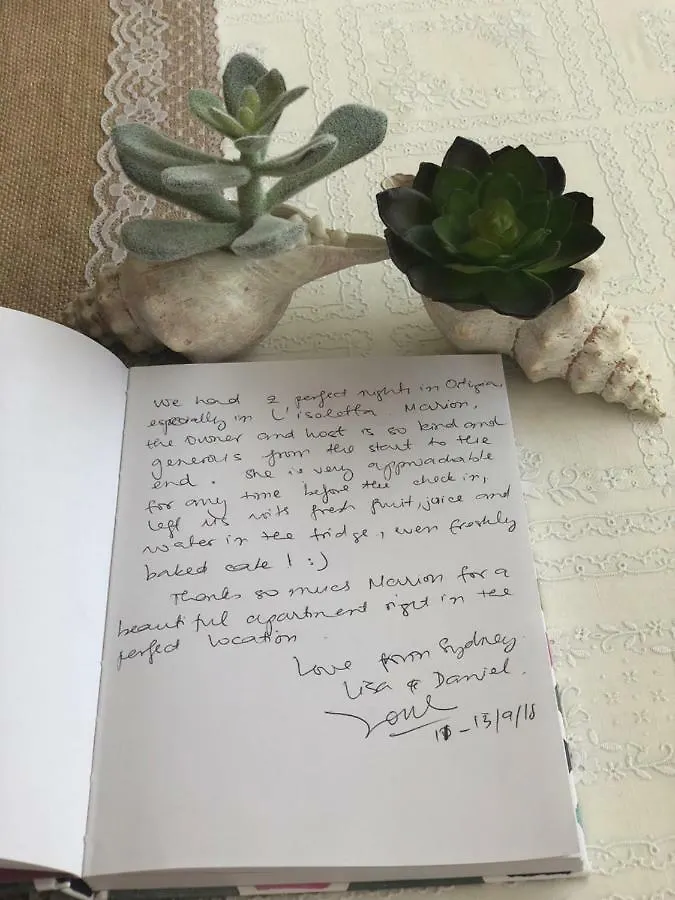 We had 2 perfect nights in Ortigia,
especially in L'isoletta. Marion,
the owner and host is so kind and
generous from the start to the
end. She is very approachable
for any time before the check in,
left us with fresh fruit, juice and
water in the fridge, even freshly
baked cake! :)
Thanks so much Marion for a
beautiful apartment right in the
perfect location.
Love from Sydney
Lisa & Daniel.
- 13/9/18